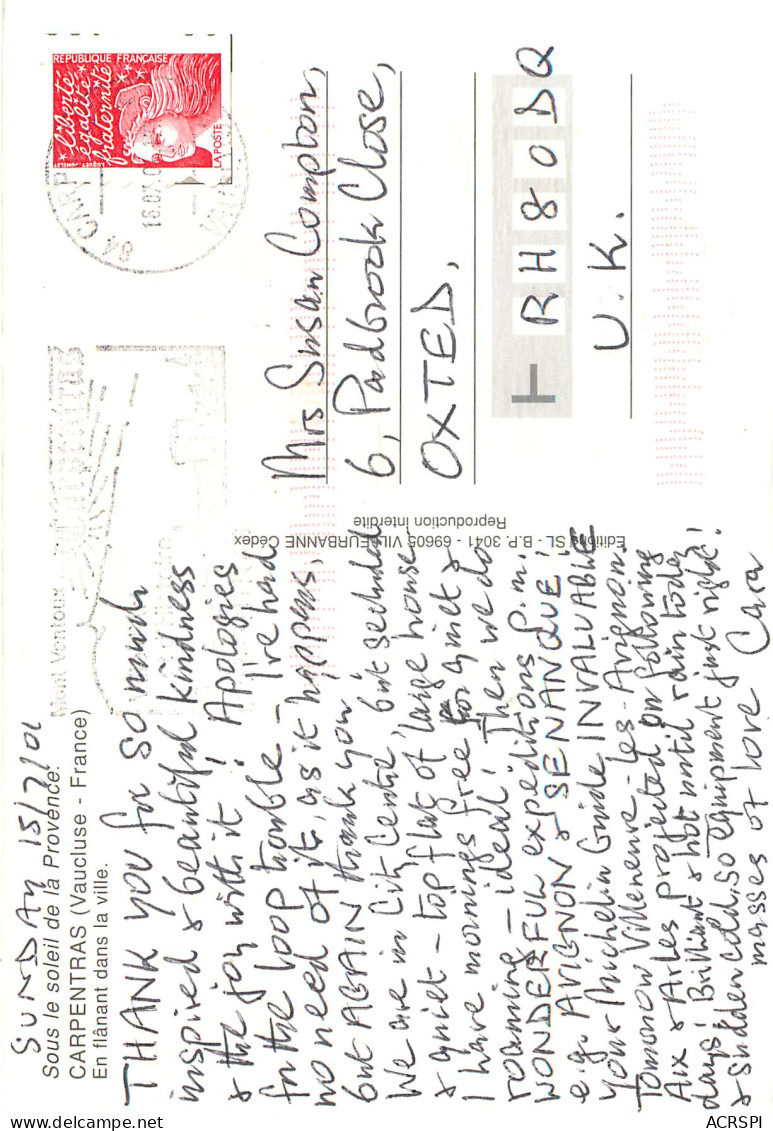 SUNDAY 15/7/01
Sous le soleil de la Provence.
CARPENTRAS (Vaucluse - France)
En flânant dans la ville.
THANK YOU for so much
inspired & beautiful kindness
& the joy with it! Apologies
for the loop trouble - I've had
no need of it, as it happens,
but AGAIN thank you
We are in City Centre, but secluded
& quiet - top flat of large house.
I have mornings free for quiet &
roaming - ideal! Then we do
WONDERFUL expeditions p.m.
e.g. AVIGNON & SENANQUE!
Your Michelin Guide INVALUABLE
Tomorrow Villeneuve-les-Avignon.
Aix & Arles projected on following
days! Brilliant & hot until rain today
& sudden cold, so equipment just right!
masses of love Cara
Editions SL - B.P. 3041 - 69605 VILLEURBANNE Cédex
Reproduction interdite
Mont Ventoux
Carpentras
REPUBLIQUE FRANÇAISE
liberté
égalité
fraternité
LA POSTE
84 CARP
Mrs Susan Compton,
6, Padbrook Close,
OXTED,
RH8 0DQ
U.K.
ACRSPI